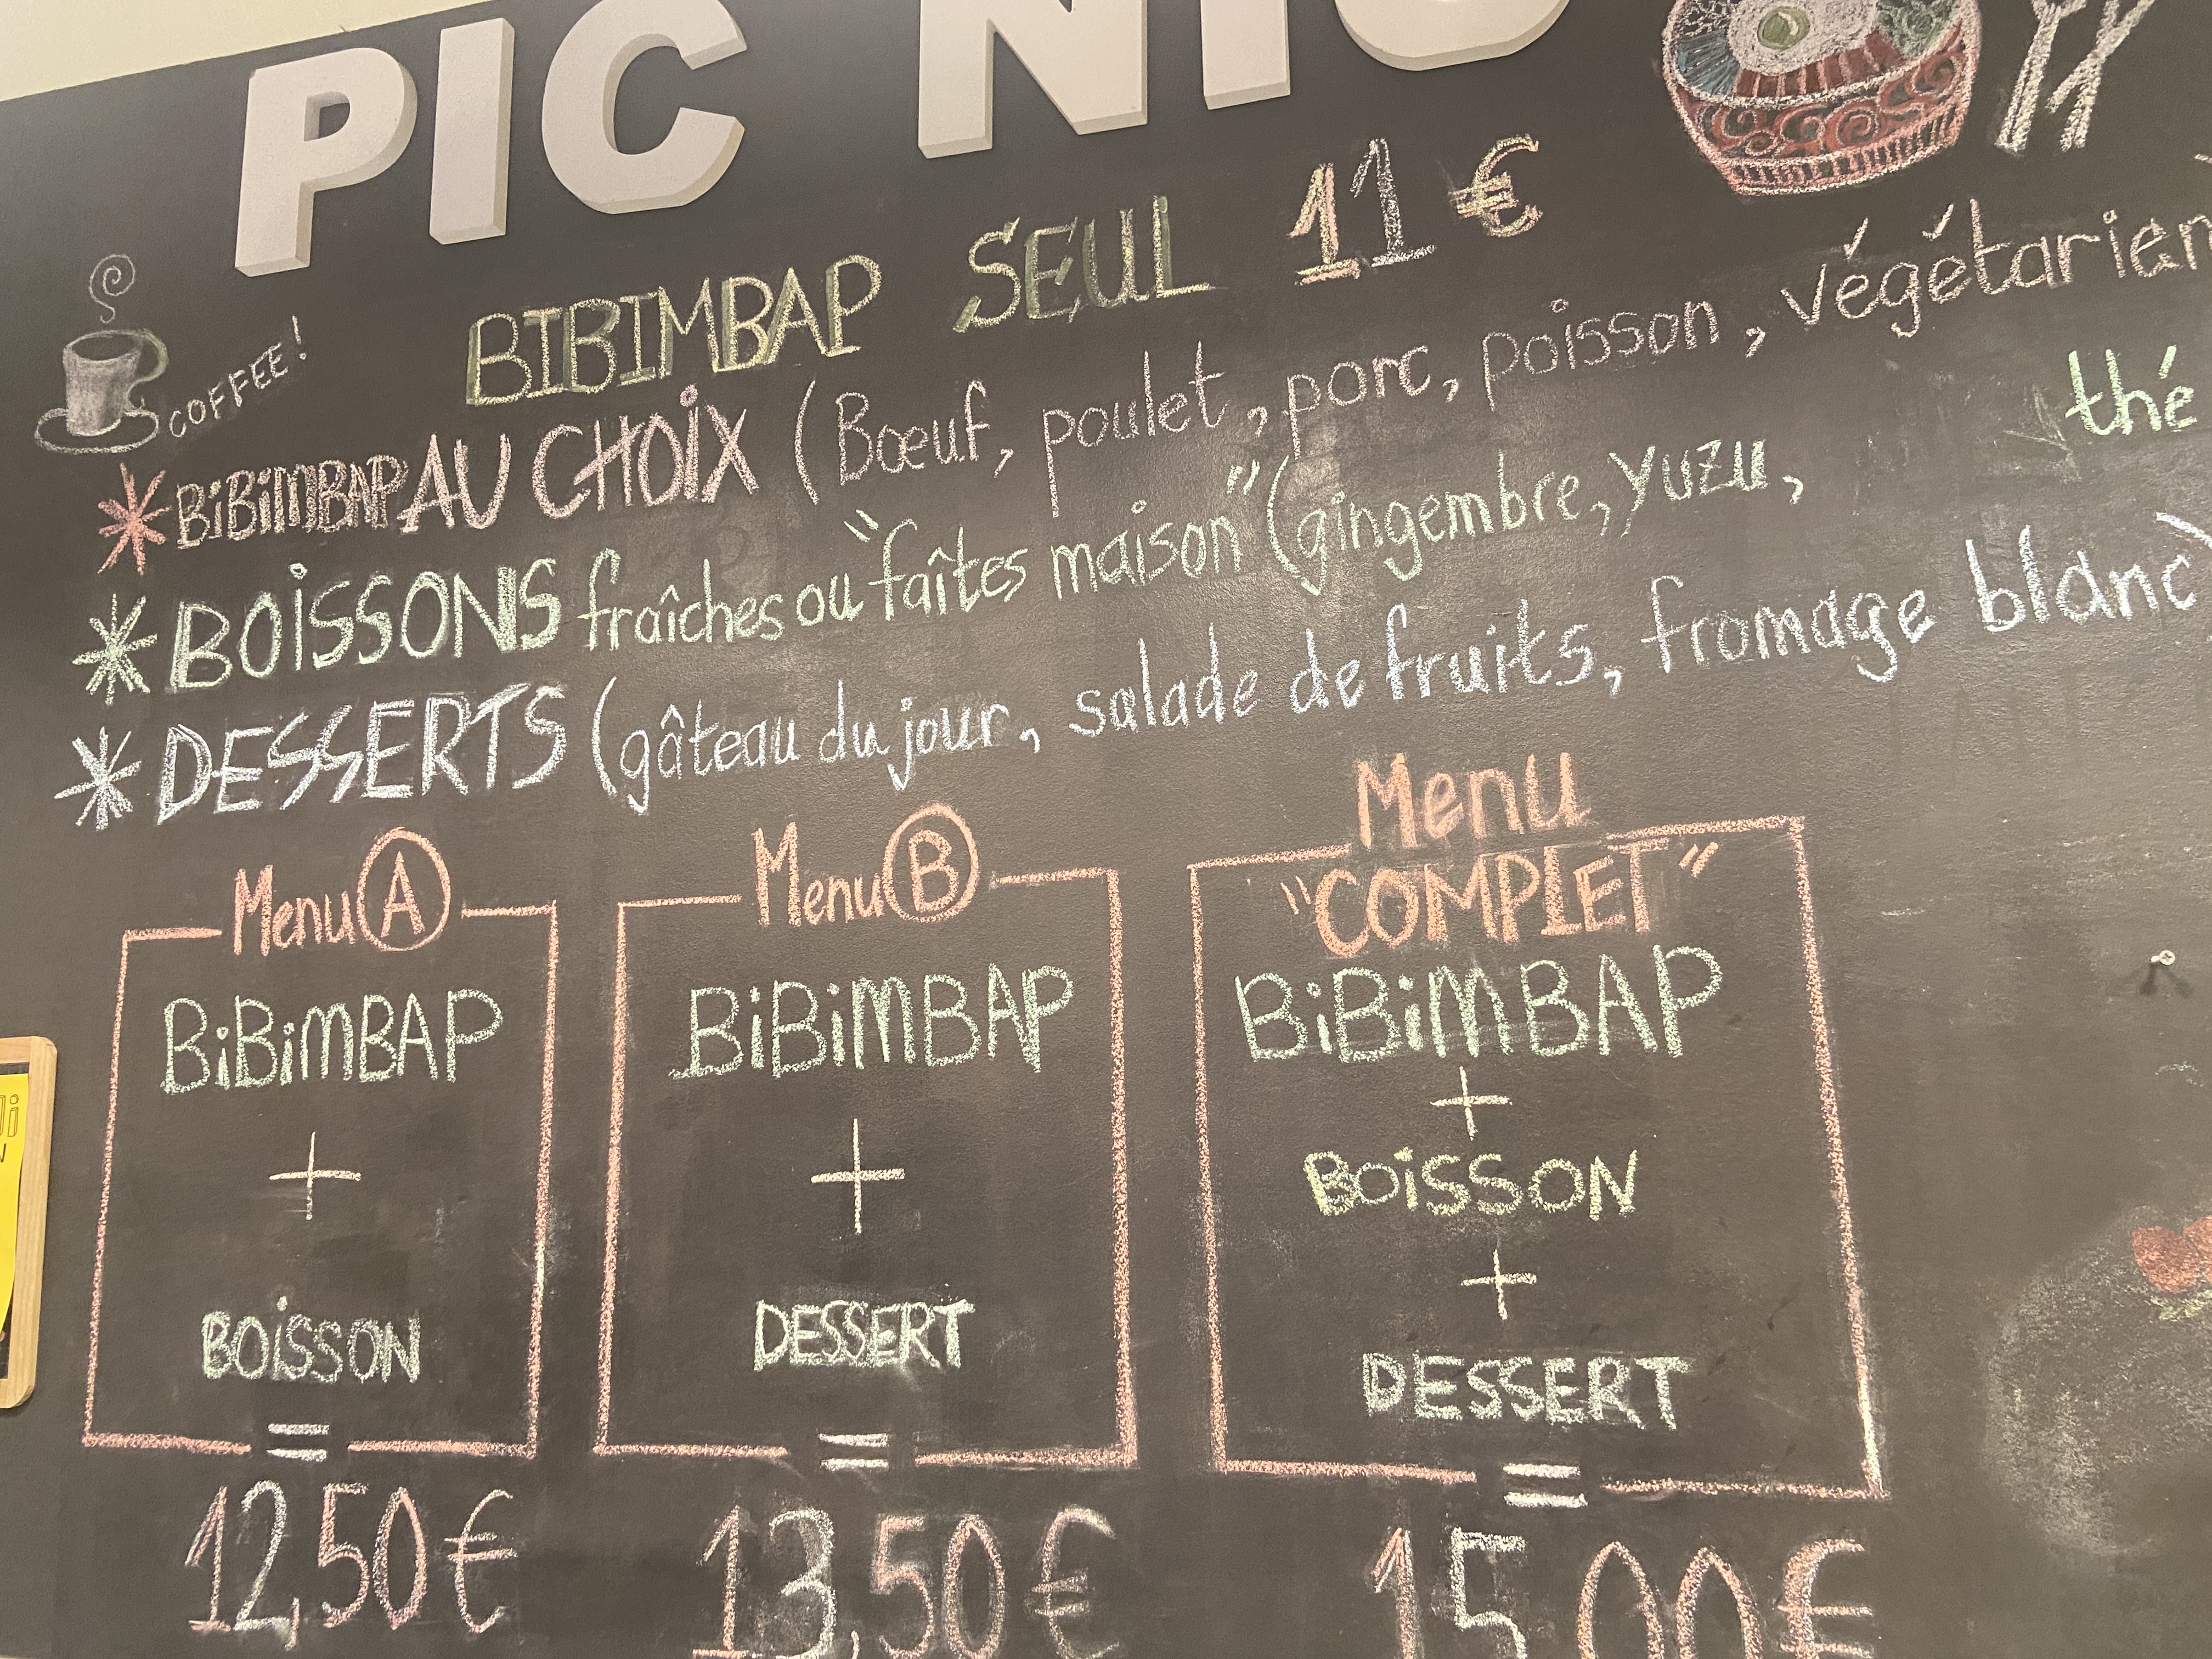 PIC NIC
BIBIMBAP SEUL 11 €
COFFEE!
* BiBiMBAP AU CHOiX (Bœuf, poulet, porc, poisson, végétarien)
* BOiSSONS fraîches ou "faîtes maison" (gingembre, yuzu, thé
* DESSERTS (gâteau du jour, salade de fruits, fromage blanc)
Menu A
BiBiMBAP
+
BOiSSON
=
12,50€
Menu B
BiBiMBAP
+
DESSERT
=
13,50€
Menu
"COMPLET"
BiBiMBAP
+
BOiSSON
+
DESSERT
=
15,00€